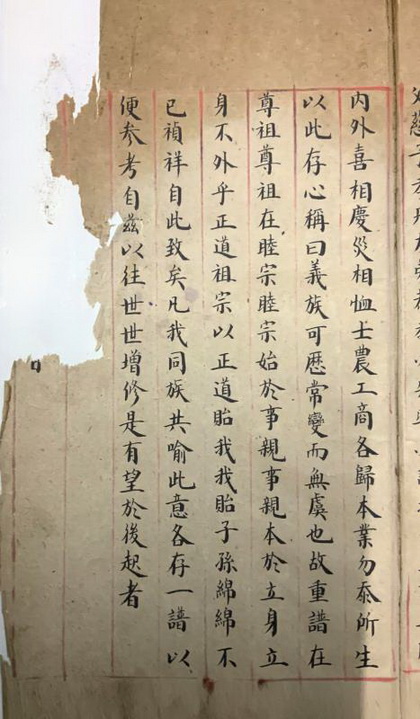 内外喜相慶災相恤士農工商各歸本業勿忝所生
以此存心稱曰義族可歷常變而無虞也故重譜在
尊祖尊祖在睦宗睦宗始於事親事親本於立身立
身不外乎正道祖宗以正道貽我我貽子孫綿綿不
已禎祥自此致矣凡我同族共喻此意各存一譜以
便参考自茲以往世世增修是有望於後起者